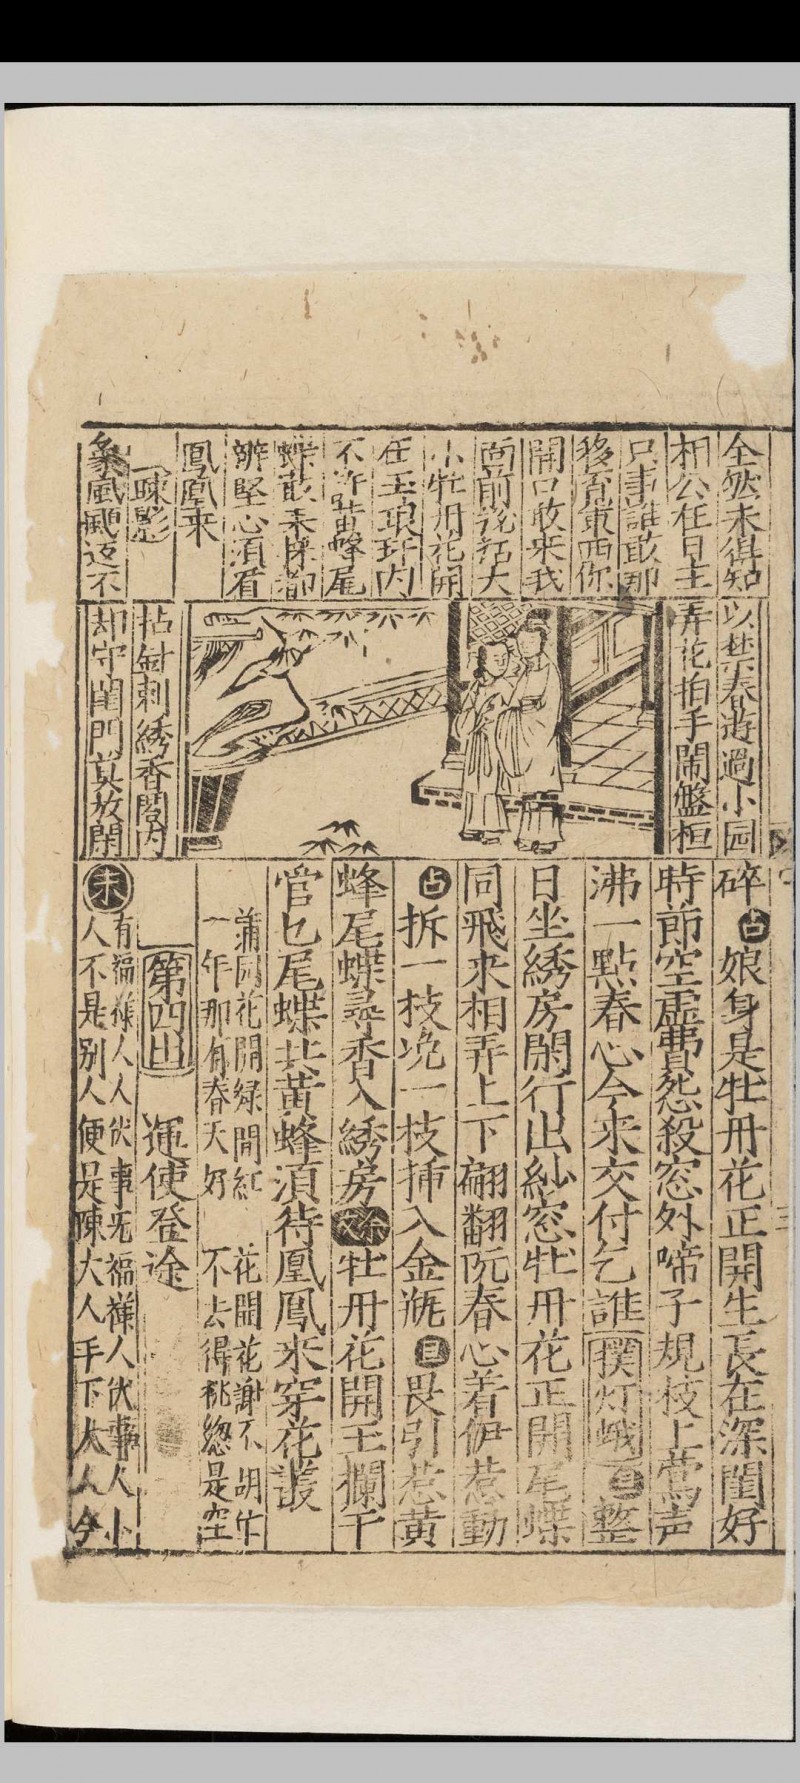 全然未得知
相公在日主
只事誰敢那
移育東西你
開口收来我
面前說話大
小牡丹花開
在玉琅玕内
不許黃蜂尾
蝶敢来採都
辦堅心須看
鳳凰来
疎影
象風颭返不
以禁春遊過小园
弄花拍手鬧盤桓
拈針刺綉香閣内
却守閨門莫放閑
碎占娘身是牡丹花正開生長在深閨好
時節空虚費怨殺窓外啼子規枝上鶯声
沸一點春心今来交付乞誰撲灯蛾旦整
日坐綉房閑行出紗窓牡丹花正開尾蝶
同飛来相弄上下翩翻阮春心着伊惹動
占拆一枝挽一枝插入金瓶旦畏引惹黃
蜂尾蝶尋香入綉房牡丹花開玉欄干
官乜尾蝶共黃蜂須待鳳凰来穿花叢
蒲园花開緑間紅 花開花謝不胡乍
一年那有春天好 不去得桃總是空
第四出 運使登途
末有福樣人人伏事无福樣人伏事人小
人不是別人便是陳大人手下大人今